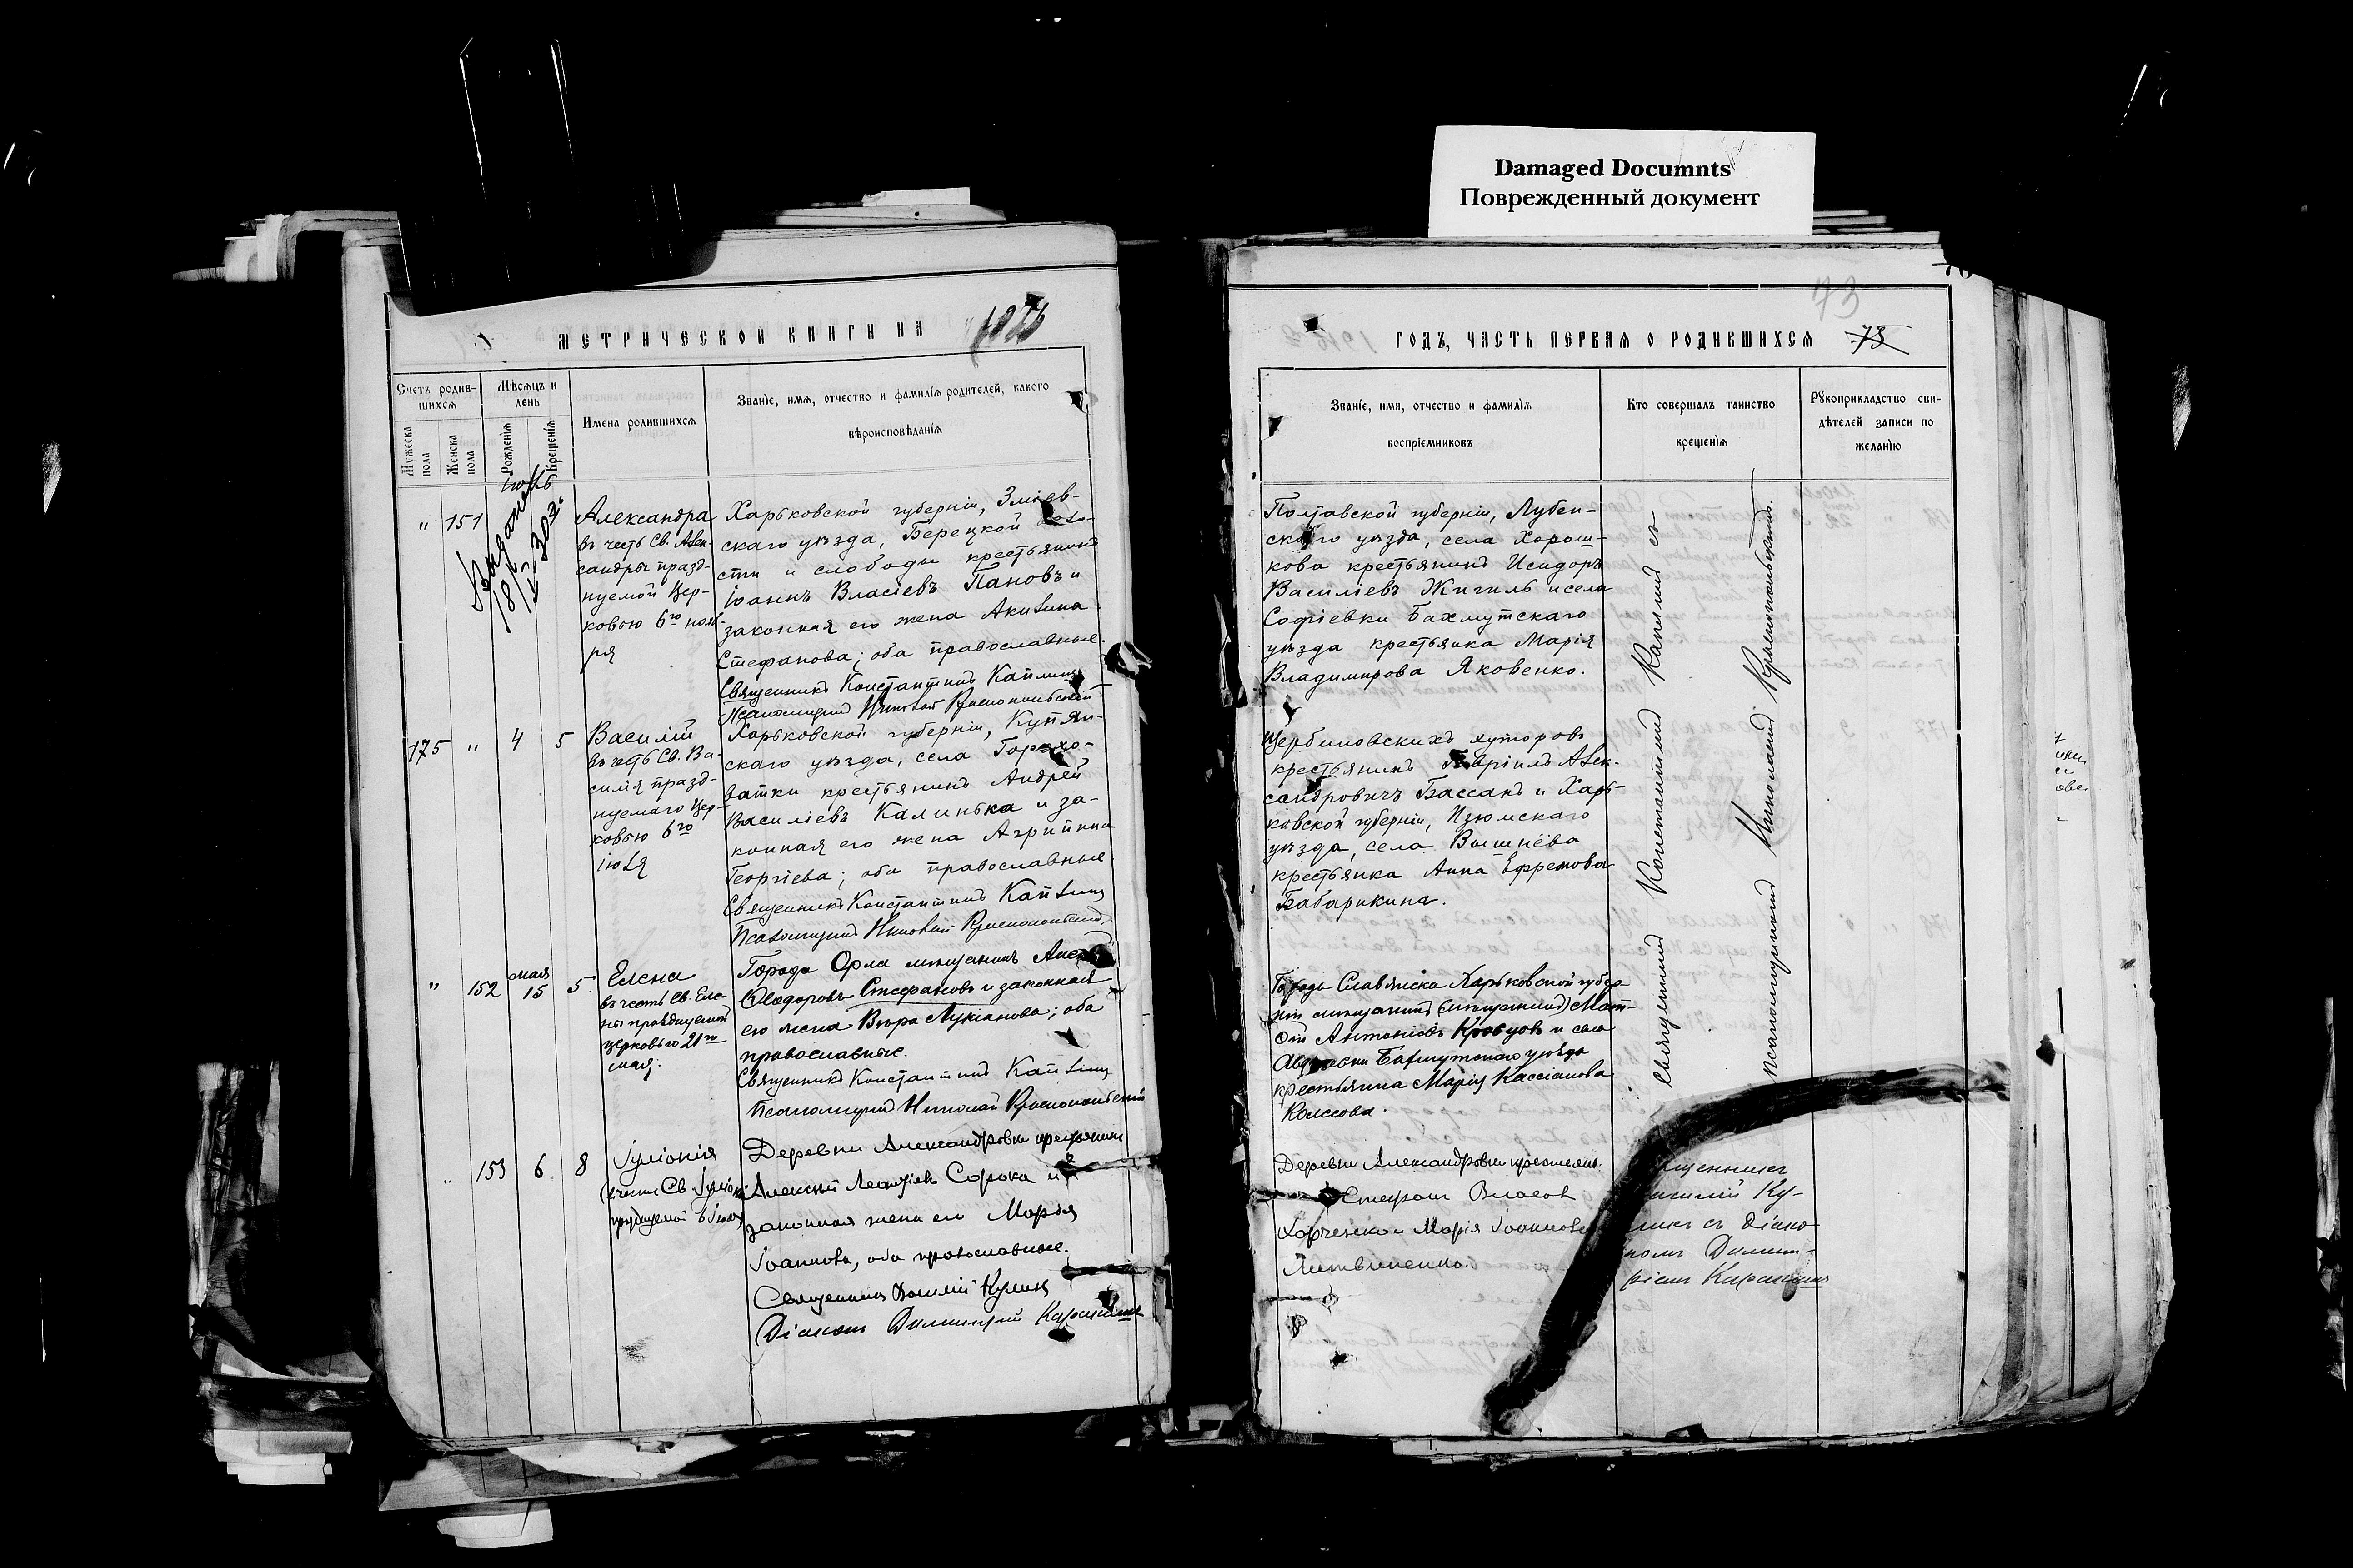 Damaged Documnts
Поврежденный документ
МЕТРИЧЕСКОЙ КНИГИ НА
Счетъ родив-
шихся
Мѣсяцъ и
день
Имена родившихся
Званіе, имя, отчество и фамилія родителей, какого
вѣроисповѣданія
Мужеска
пола
Женска
пола
Рожденія
Крещенія
" 151
Александра
въ честь Св. Алек-
сандры празд-
нуемой Цер-
ковью 6го нояб-
ря
Харьковской губерніи, Зміев-
скаго уѣзда, Берецкой воло-
сти и слободы крестьянинъ
Іоаннъ Власіевъ Пановъ и
законная его жена Акилина
Стефанова; оба православные.
Священникъ Константинъ Каплинъ
Псаломщикъ Николай Краснопольскій
175 " 4 5
Василій
въ честь Св. Ва-
силія празд-
нуемаго Цер-
ковью 6го
іюля
Харьковской губерніи, Купян-
скаго уѣзда, села Горохо-
ватки крестьянинъ Андрей
Василіевъ Калинька и за-
конная его жена Агрипина
Георгіева; оба православные.
Священникъ Константинъ Каплинъ
Псаломщикъ Николай Краснопольскій
" 152 мая 15 5
Елена
въ честь Св. Еле-
ны празднуемой
церковью 21го
мая.
Города Орла мѣщанинъ
Ѳеодоровъ Стефановъ и законная
его жена Вѣра Лукіанова; оба
православные.
Священникъ Константинъ Каплинъ
Псаломщикъ Николай Краснопольскій
" 153 6 8
Іуліанія
Деревни Александровки крестьянинъ
Алексѣй Леонтіевъ Сорока и
законная жена его Марѳа
Іоаннова, оба православные.
Священникъ Василій Куликъ
Діаконъ Димитрій
73
ГОДЪ, ЧАСТЬ ПЕРВАЯ О РОДИВШИХСЯ 73
Званіе, имя, отчество и фамилія
воспріемниковъ
Кто совершалъ таинство
крещенія
Рукоприкладство сви-
дѣтелей записи по
желанію
Полтавской губерніи, Лубен-
скаго уѣзда, села Хорош-
кова крестьянинъ Исидоръ
Василіевъ Жигиль и села
Софіевки Бахмутскаго
уѣзда крестьянка Марія
Владимирова Яковенко.
Щербиновскихъ хуторовъ
крестьянинъ Гавріилъ Алек-
сандровичъ Бассанъ и Харь-
ковской губерніи, Изюмскаго
уѣзда, села Вышнева
крестьянка Анна Ефремова
Бабарикина.
Города Славянска Харьковской губер-
ніи мѣщанинъ (мѣщанинъ) Мат-
Антоніевъ Кравцовъ и села
Бахмутскаго уѣзда
крестьянка Марія Кассіанова
Колесова.
Деревни Александровки крестьян.
Стефанъ Власовъ
Харченко и Марія Іоаннова
Литвиненко.
Священникъ Константинъ Каплинъ съ
псаломщикомъ Николаемъ Краснопольскимъ.
силій Ку-
ликъ съ діако-
номъ Димит-